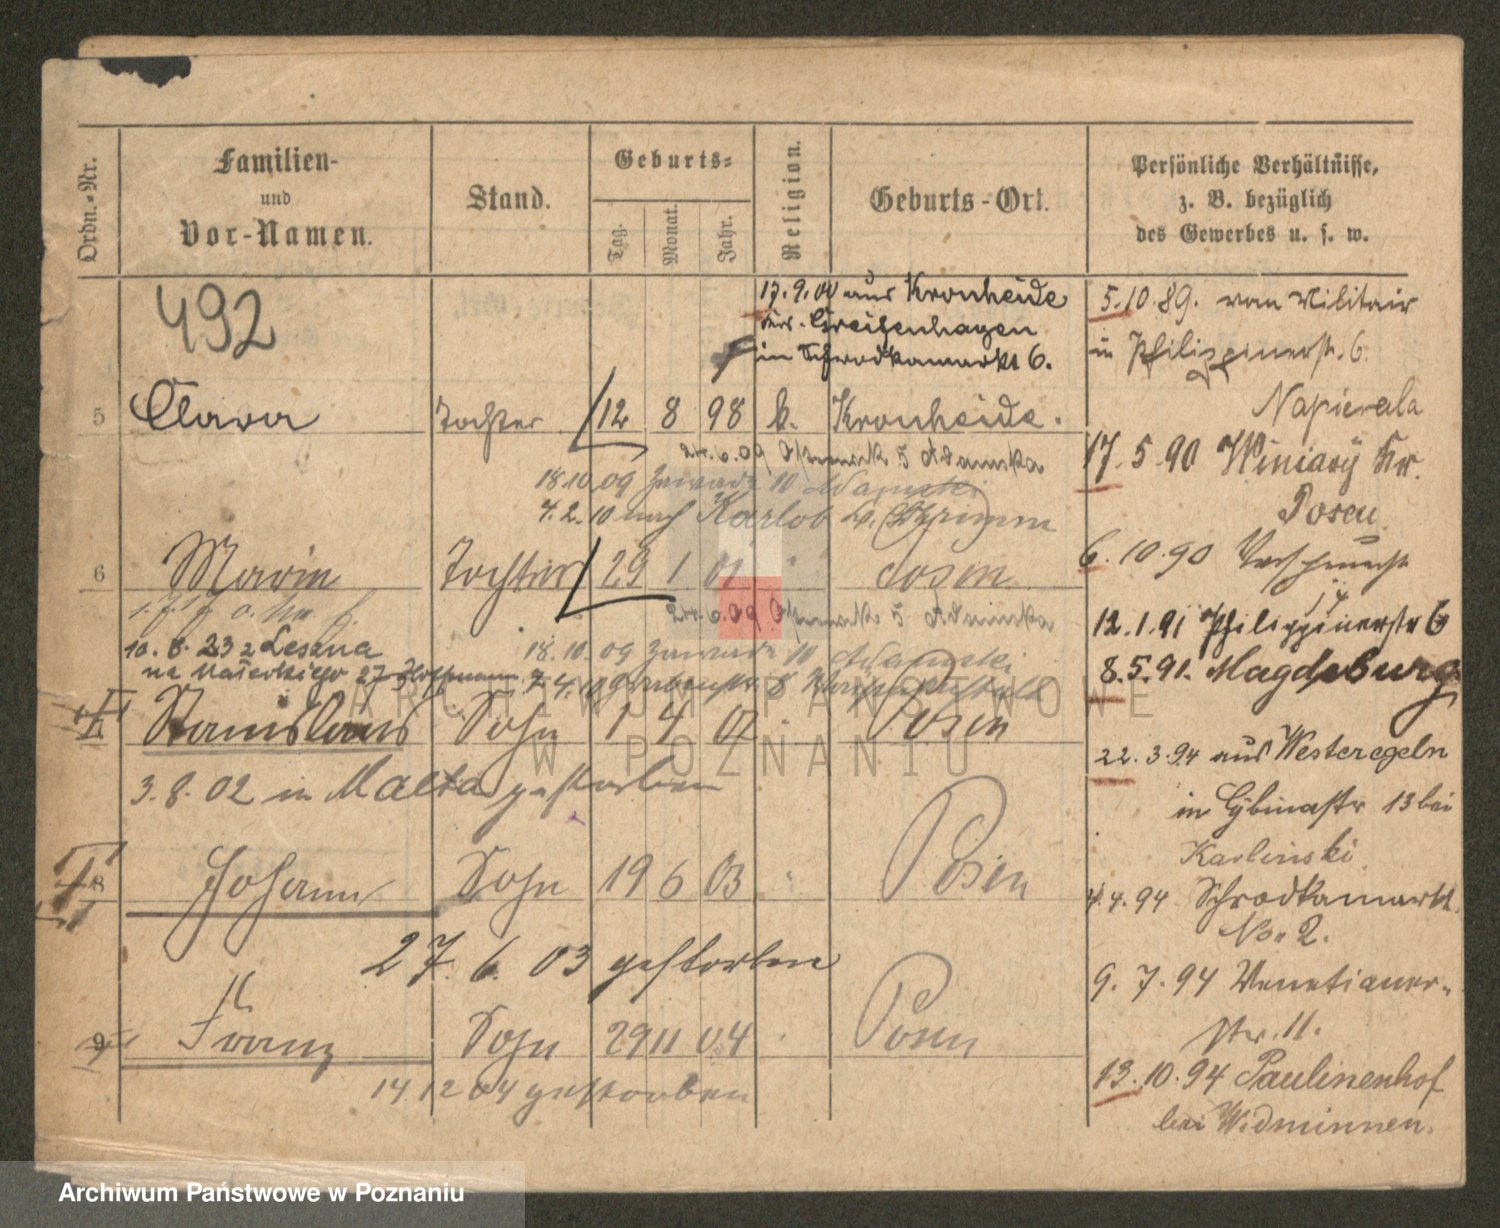 Ordn.-Nr.
Familien-
und
Vor-Namen.
Stand.
Geburts-
Tag.
Monat.
Jahr.
Religion.
Geburts-Ort.
Persönliche Verhältnisse,
z. B. bezüglich
des Gewerbes u. s. w.
492
17.9.00 aus Kronheide
Greifenhagen
in Schrodkamarkt 6.
5 Clara Tochter 12 8 98 k. Kronheide.
24.6.09 5 Adamska
18.10.09 Zawade 10 Adamski
4.2.10 nach Karlob
6 Marin Tochter 29 1 01 " Posen
24.6.09 5
10.8.23 z Leszna
na 27 Hoffmann
18.10.09 Zawade 10 Adamski
Stanislaus Sohn 1 4 02 " Posen
3.8.02 in Malta gestorben
8 Johann Sohn 19 6 03 " Posen
27.6.03 gestorben
9 Franz Sohn 29 11 04 " Posen
14 12 04 gestorben
5.10.89. vom Militair
in Philippinerstr. 6.
Napierala
17.5.90 Winiary Kr.
Posen
6.10.90
12.1.91 Philippinerstr 6
8.5.91. Magdeburg
22.3.94 aus Westeregeln
in Cybinastr 13 bei
Karlinski
4.4.94 Schrodkamarkt
No. 2.
9.7.94 Venetianer-
str. 11.
13.10.94 Paulinenhof
bei Widminnen.
ARCHIWUM PAŃSTWOWE
W POZNANIU
Archiwum Państwowe w Poznaniu